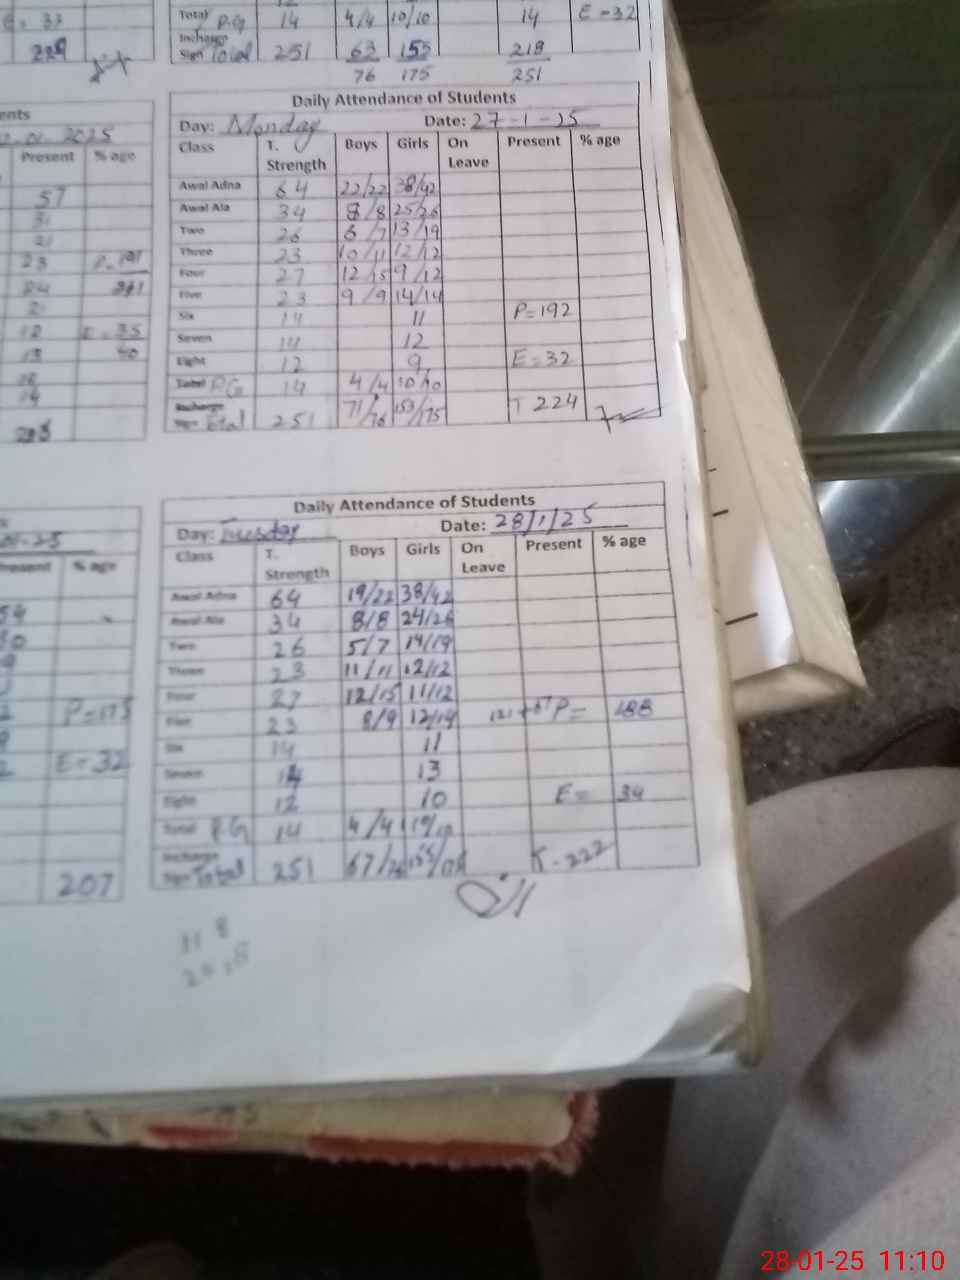 E = 33
Total P.G 14 4/4 10/10 14 E = 32
Incharge
Sign Total 251 63 155 218
76 175 251
Daily Attendance of Students
Day: Monday Date: 27-1-25
Class T. Strength Boys Girls On Leave Present % age
Awal Adna 64 22/22 38/42
Awal Ala 34 8/8 25/26
Two 26 6/7 13/19
Three 23 10/11 12/12
Four 27 12/15 9/12
Five 23 9/9 14/14
Six 14 11 P=192
Seven 14 12
Eight 12 9 E=32
Total P.G 14 4/4 10/10
Incharge
Sign Total 251 71/76 153/175 T 224
ents
01.2025
Present % age
57
31
21
23
24
12 E = 35
13
Daily Attendance of Students
Day: Tuesday Date: 28/1/25
Class T. Strength Boys Girls On Leave Present % age
Awal Adna 64 19/22 38/42
Awal Ala 34 8/8 24/26
Two 26 5/7 14/19
Three 23 11/11 12/12
Four 27 12/15 11/12
Five 23 8/9 12/14 121+67 P= 188
Six 14 11
Seven 14 13
Eight 12 10 E= 34
Total P.G 14 4/4 10/10
Incharge
Sign Total 251 67/76 155/175 T-222
Present % age
P=175
E=32
207
28-01-25 11:10